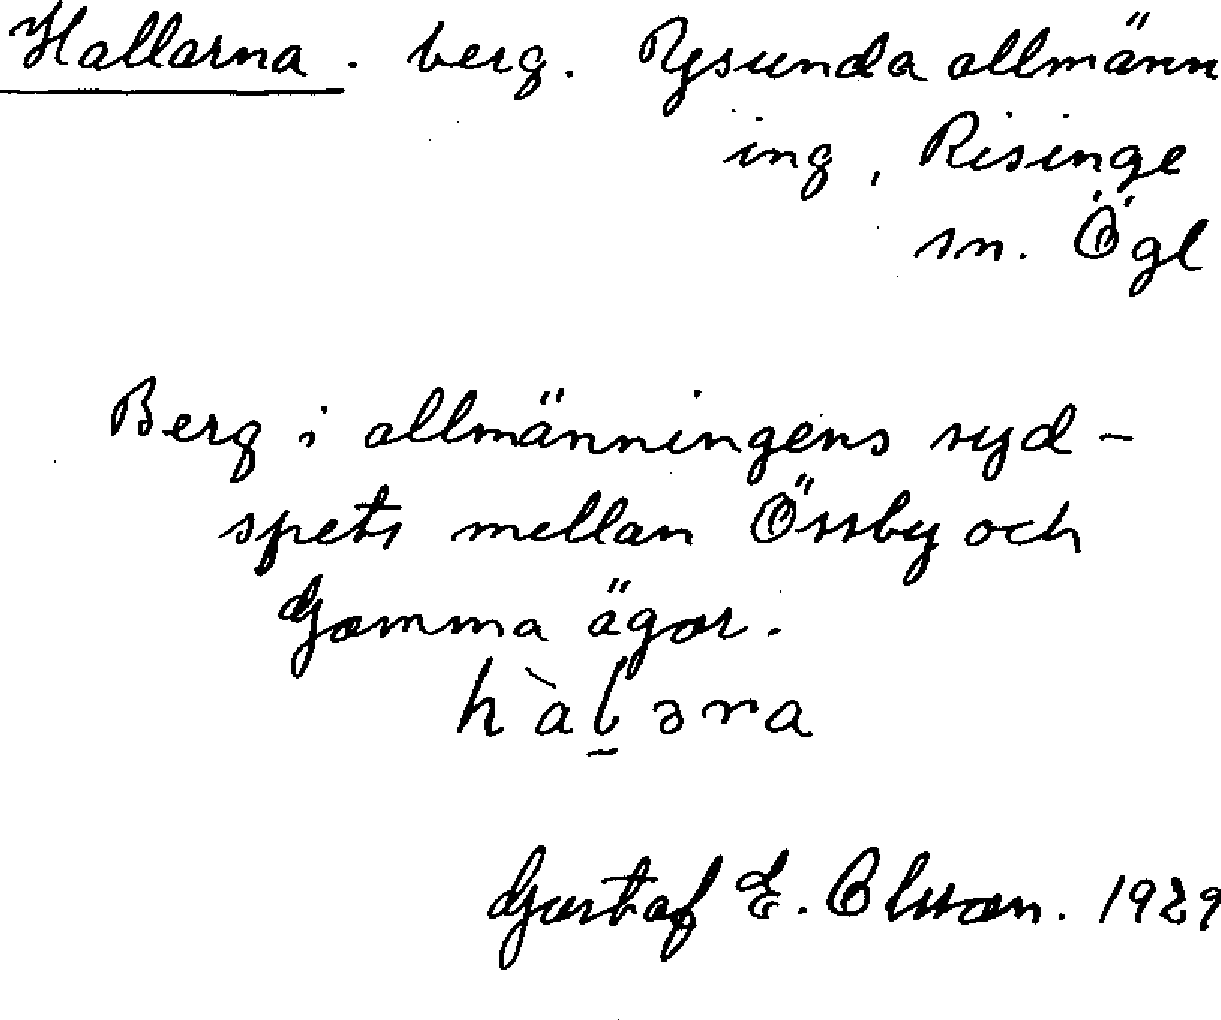 Hallarna. berg. Rysunda allmänn
ing, Risinge
sn. Ögl
Berg i allmänningens syd-
spets mellan Össby och
Gamma ägor.
hàl̠əra
Gustaf E. Olsson. 1929